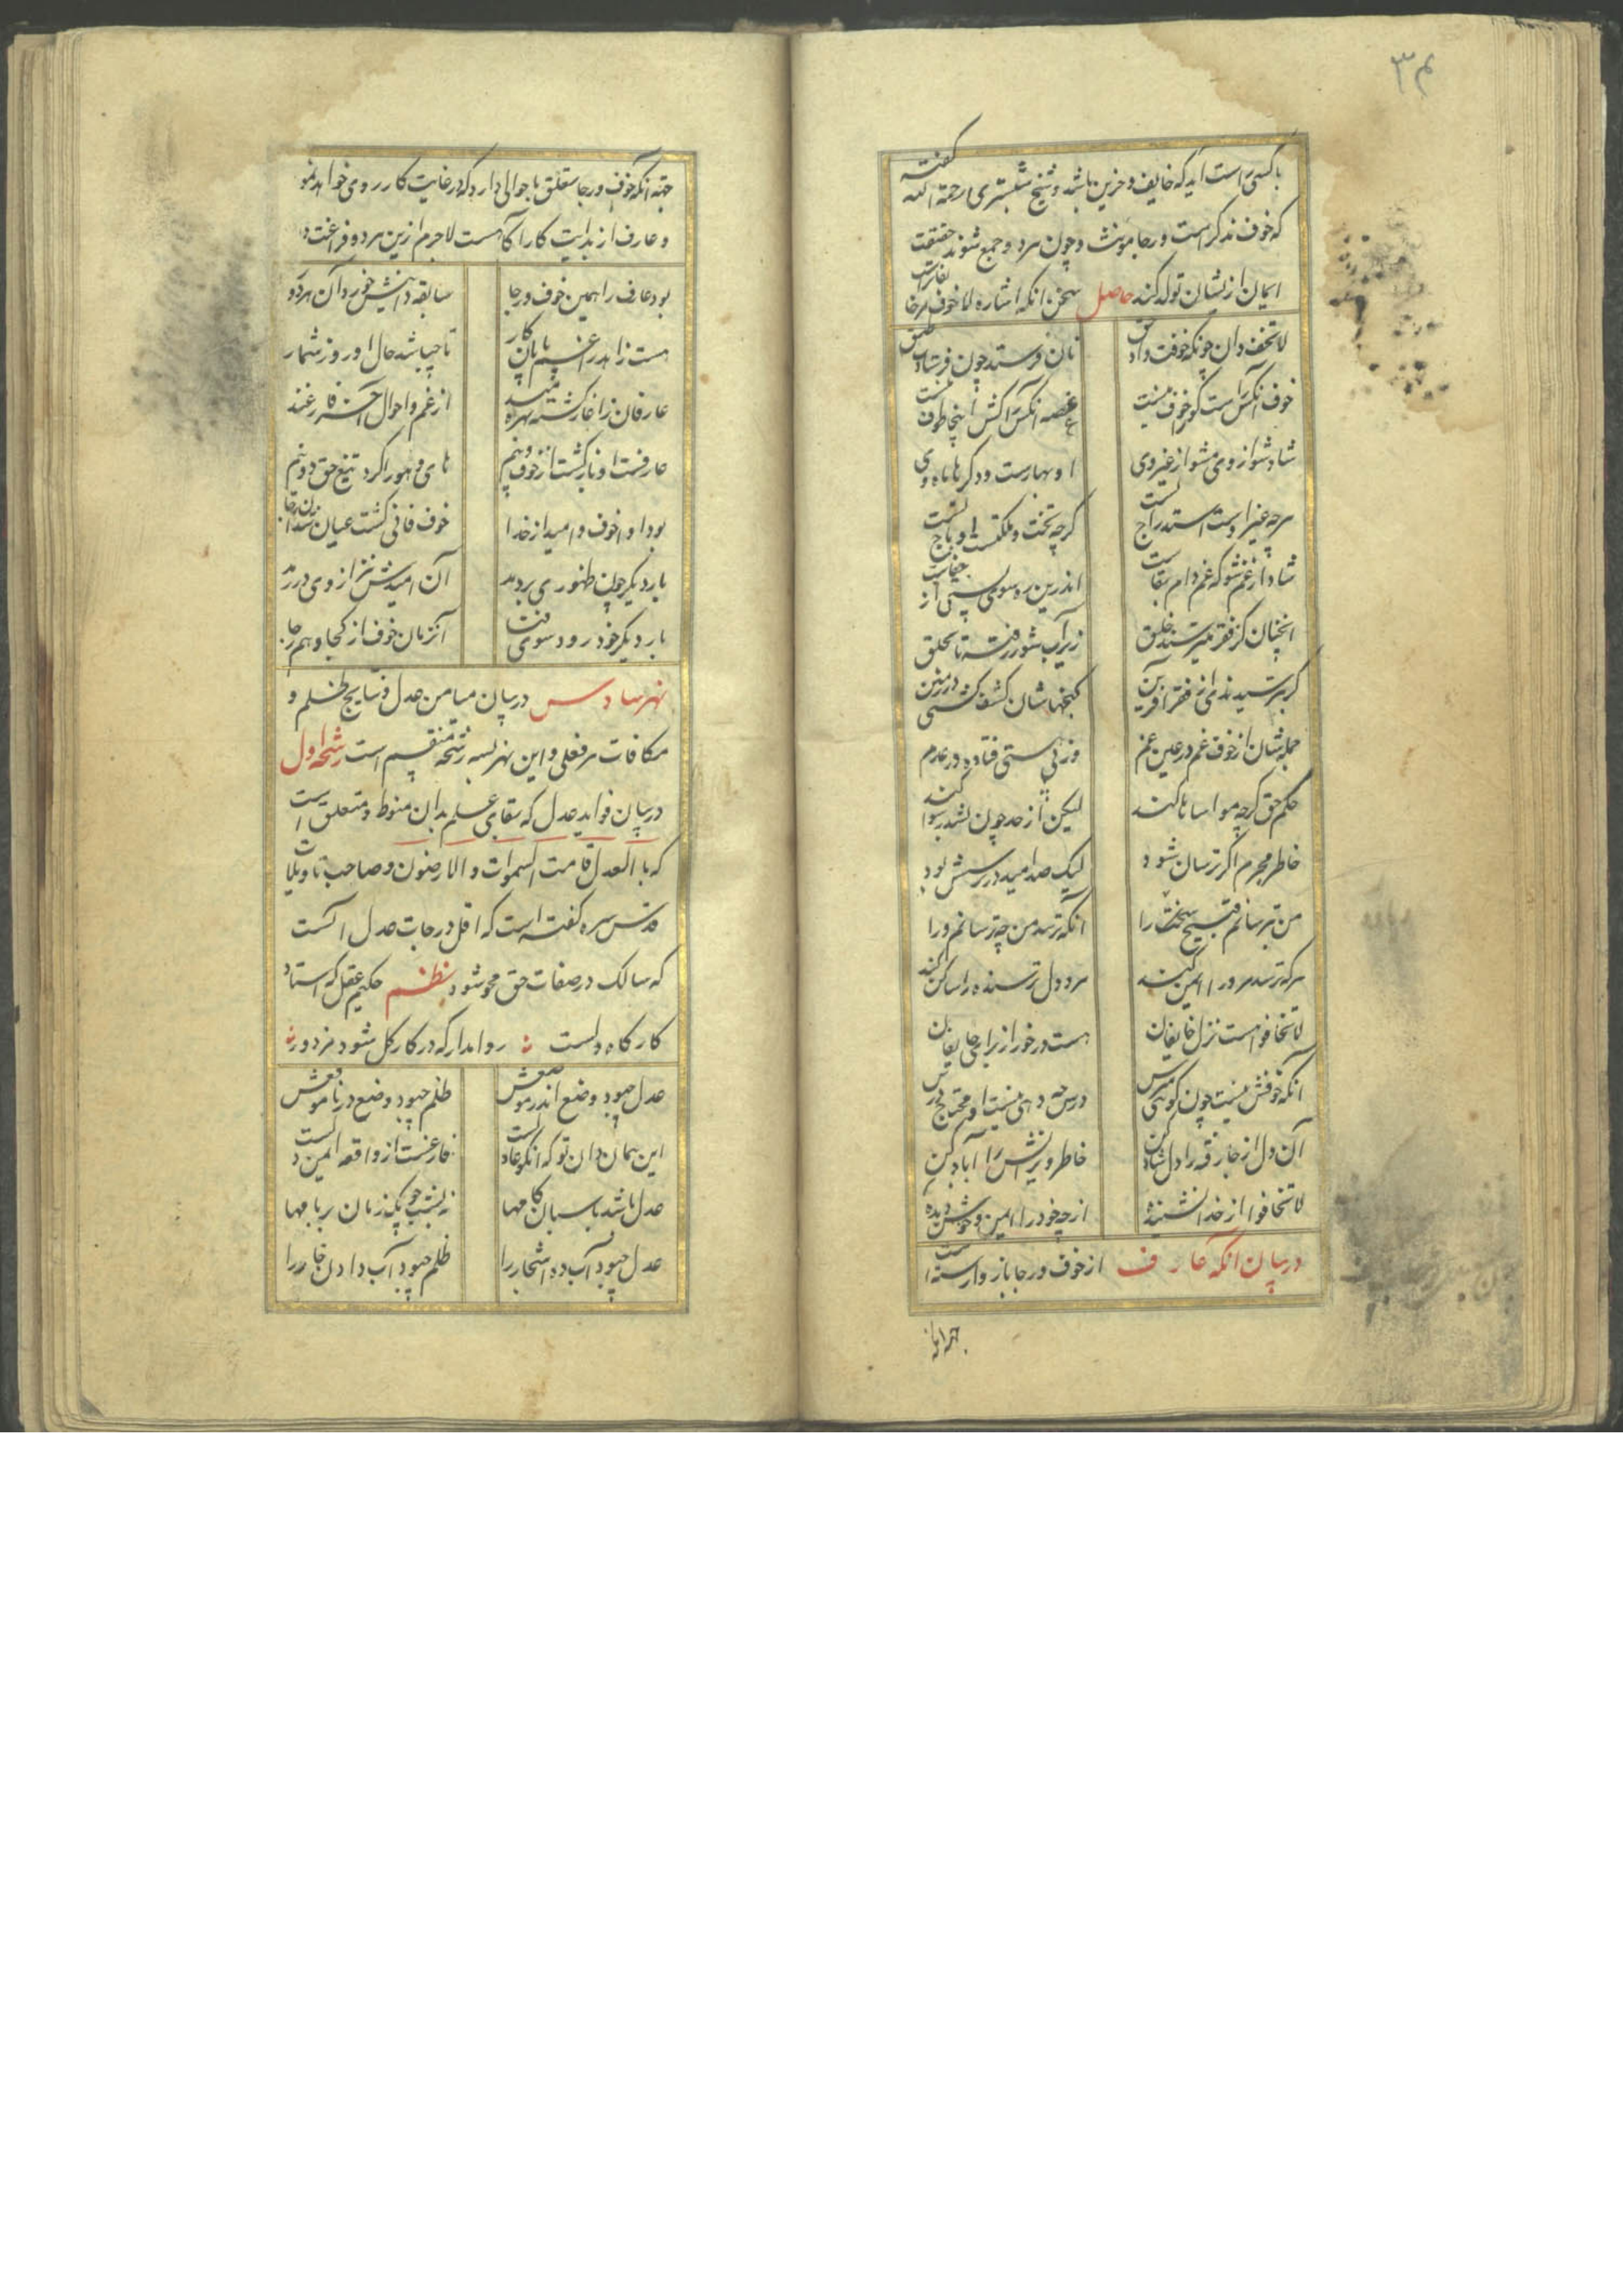 ۳۴
باکسی راست آید که خایف و حزین باشد و شیخ شبستری رحمة الله گفته
که خوف مذکر است و رجا مونث و چون هر دو جمع شوند حقیقت
ایمان ازیشان تولد کند حاصل سخن آنکه اشاره لا خوف مر خایفانراست
لا تخف دان چونکه خوفت داد حق نان فرستد چون فرستادت طبق
خوف آنکس راست کو را خوف نیست غصه آنکس را کش اینجا طوف نیست
شاد شو از وی مشو از غیر وی او بهارست و دگرها ماه دی
هرچه غیر اوست استدراج تست گرچه تخت و ملکتست و تاج تست
شاد از غم شو که غم دام بقاست اندرین ره سوی پستی ارتقاست
آنچنان کز فقر میترسند خلق زیر آب شور رفته تا بحلق
گر بترسیدندی از فقر آفرین گنجهاشان کشف گشتی در زمین
جمله شان از خوف غم در عین غم وز پی هستی فتاده در عدم
حکم حق گرچه مواساها کند لیکن از حد چون بشد رسوا کند
خاطر مجرم اگر ترسان شود لیک صد امید در ترسش بود
من بترسانم وقیح سخت را آنکه ترسد من چه ترسانم ورا
هرکه ترسد مر ورا ایمن کنند مر دل ترسنده را ساکن کنند
لا تخافوا هست نزل خایفان هست درخور از برای خایف آن
آنکه خوفش نیست چون گویی مترس درس چه دهی نیست او محتاج درس
آن دل از جا رفته را دلشاد کن خاطر ویرانش را آباد کن
لا تخافوا از خدا نشنیدۀ از چه خود را ایمن و خوش دیدۀ
در بیان آنکه عارف از خوف و رجا باز وارسته است
جهة آنکه خوف و رجا متعلق باحوالی دارد که در غایت کار روی خواهد نمود
و عارف از بدایت کار آگاهست لاجرم ازین هر دو فراغت دارد
بود عارف را همین خوف و رجا سابقه دانیش خورد آن هر دو را
هست زاهد را غم پایان کار تا چه باشد حال او روز شمار
عارفان ز آغاز گشته هوشمند از غم و احوال آخر فارغند
عارفست او باز گشت از خوف و بیم های و هو را کرد تیغ حق دو نیم
بود او را خوف و امید از خدا خوف فانی گشت عیان شد آن رجا
بار دیگر چون طهوری بردمد آن امیدش نیز از وی دررمد
بار دیگر خود رود سوی فنا آنزمان خوف از کجا و هم رجا
نهر سادس در بیان میامن عدل و نتایج ظلم و
مکافات هر فعلی و این نهر بسه رشحه منقسم است رشحۀ اول
در بیان فواید عدل که بقای عالم بدان منوط و متعلق است
که بالعدل قامت السموات و الارضون و صاحب تاویلات
قدس سره گفته است که اقل درجات عدل آنست
که سالک در صفات حق محو شود نظم حکیم عقل که استاد
کارگاه دلست روا مدار که در کار گل شود مزدور
عدل چبود وضع اندر موضعش ظلم چبود وضع در ناموقعش
این همان دان تو که آنکو عادلست فارغست از واقعه ایمن دلست
عدل باشد پاسبان کامها نه بشب چوبک زنان بر بامها
عدل چبود آب ده اشجار را ظلم چبود آب دادن خار را
جهة آنکه